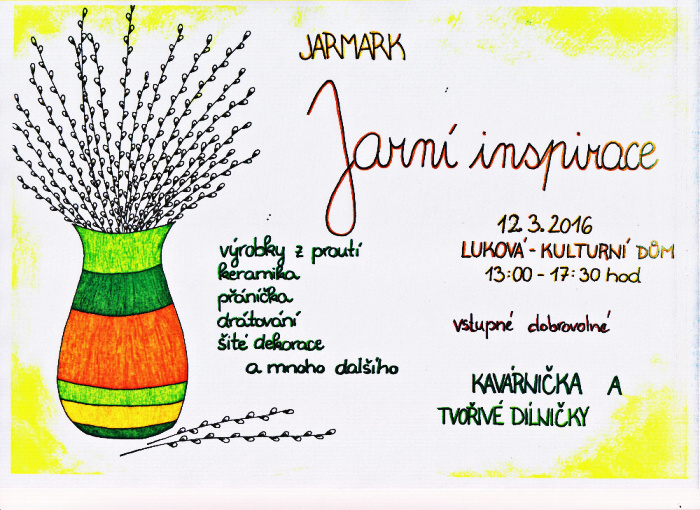 JARMARK
Jarní inspirace
12.3.2016
LUKOVÁ - KULTURNÍ DŮM
13:00 - 17:30 hod
výrobky z proutí
keramika
přáníčka
drátování
šité dekorace
a mnoho dalšího
vstupné dobrovolné
KAVÁRNIČKA A
TVOŘIVÉ DÍLNIČKY